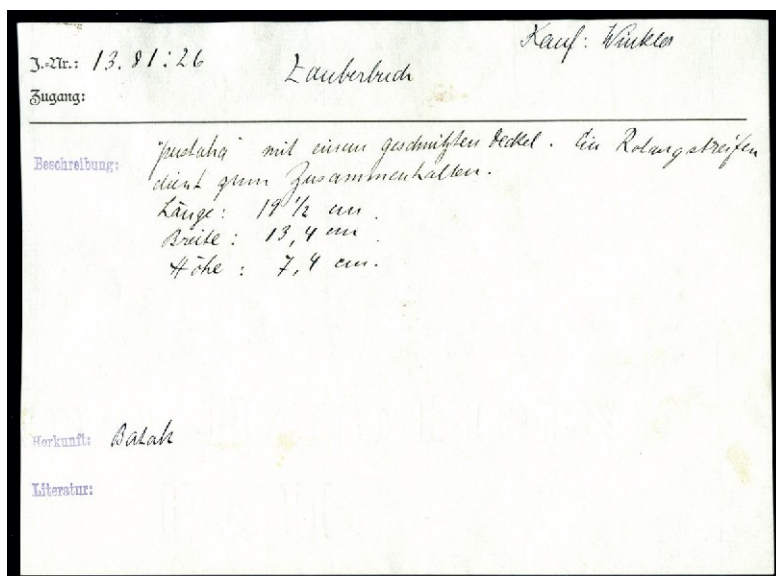 Kauf: Winkler
J.-Nr.: 13.81:26
Zauberbuch
Zugang:
Beschreibung: "pustaha" mit einem geschnitzten Deckel. Ein Rotangstreifen
dient zum Zusammenhalten.
Länge: 19 1/2 cm.
Breite: 13,4 cm.
Höhe: 7,4 cm.
Herkunft: Batak
Literatur: